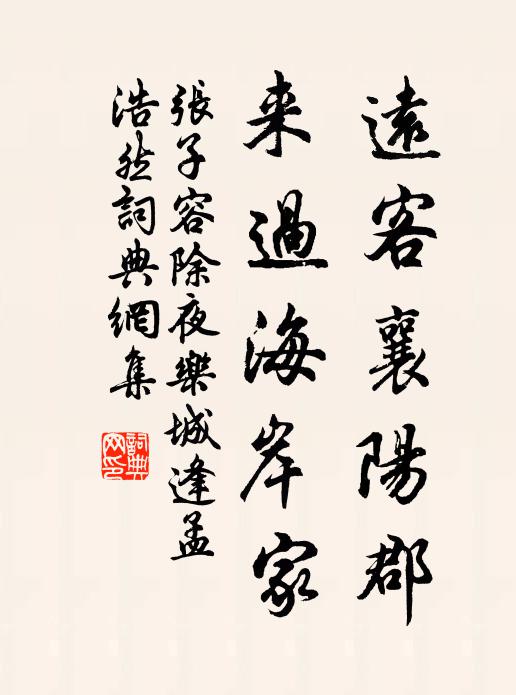 遠客襄陽郡
来過海岸家
張子容除夜樂城逢孟
浩然詞典網集
詞典网印